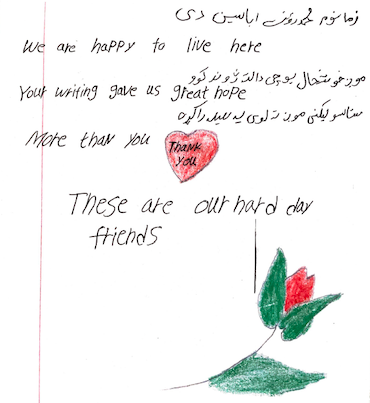 زما نوم محمد رؤف اباسین دی
We are happy to live here
موږ خوشحال یو چی دالته ژوند کوو
Your writing gave us great hope
ستاسو لیکنی موږ ته لوی امید راکړه
More than you
Thank
you
These are our hard day
friends